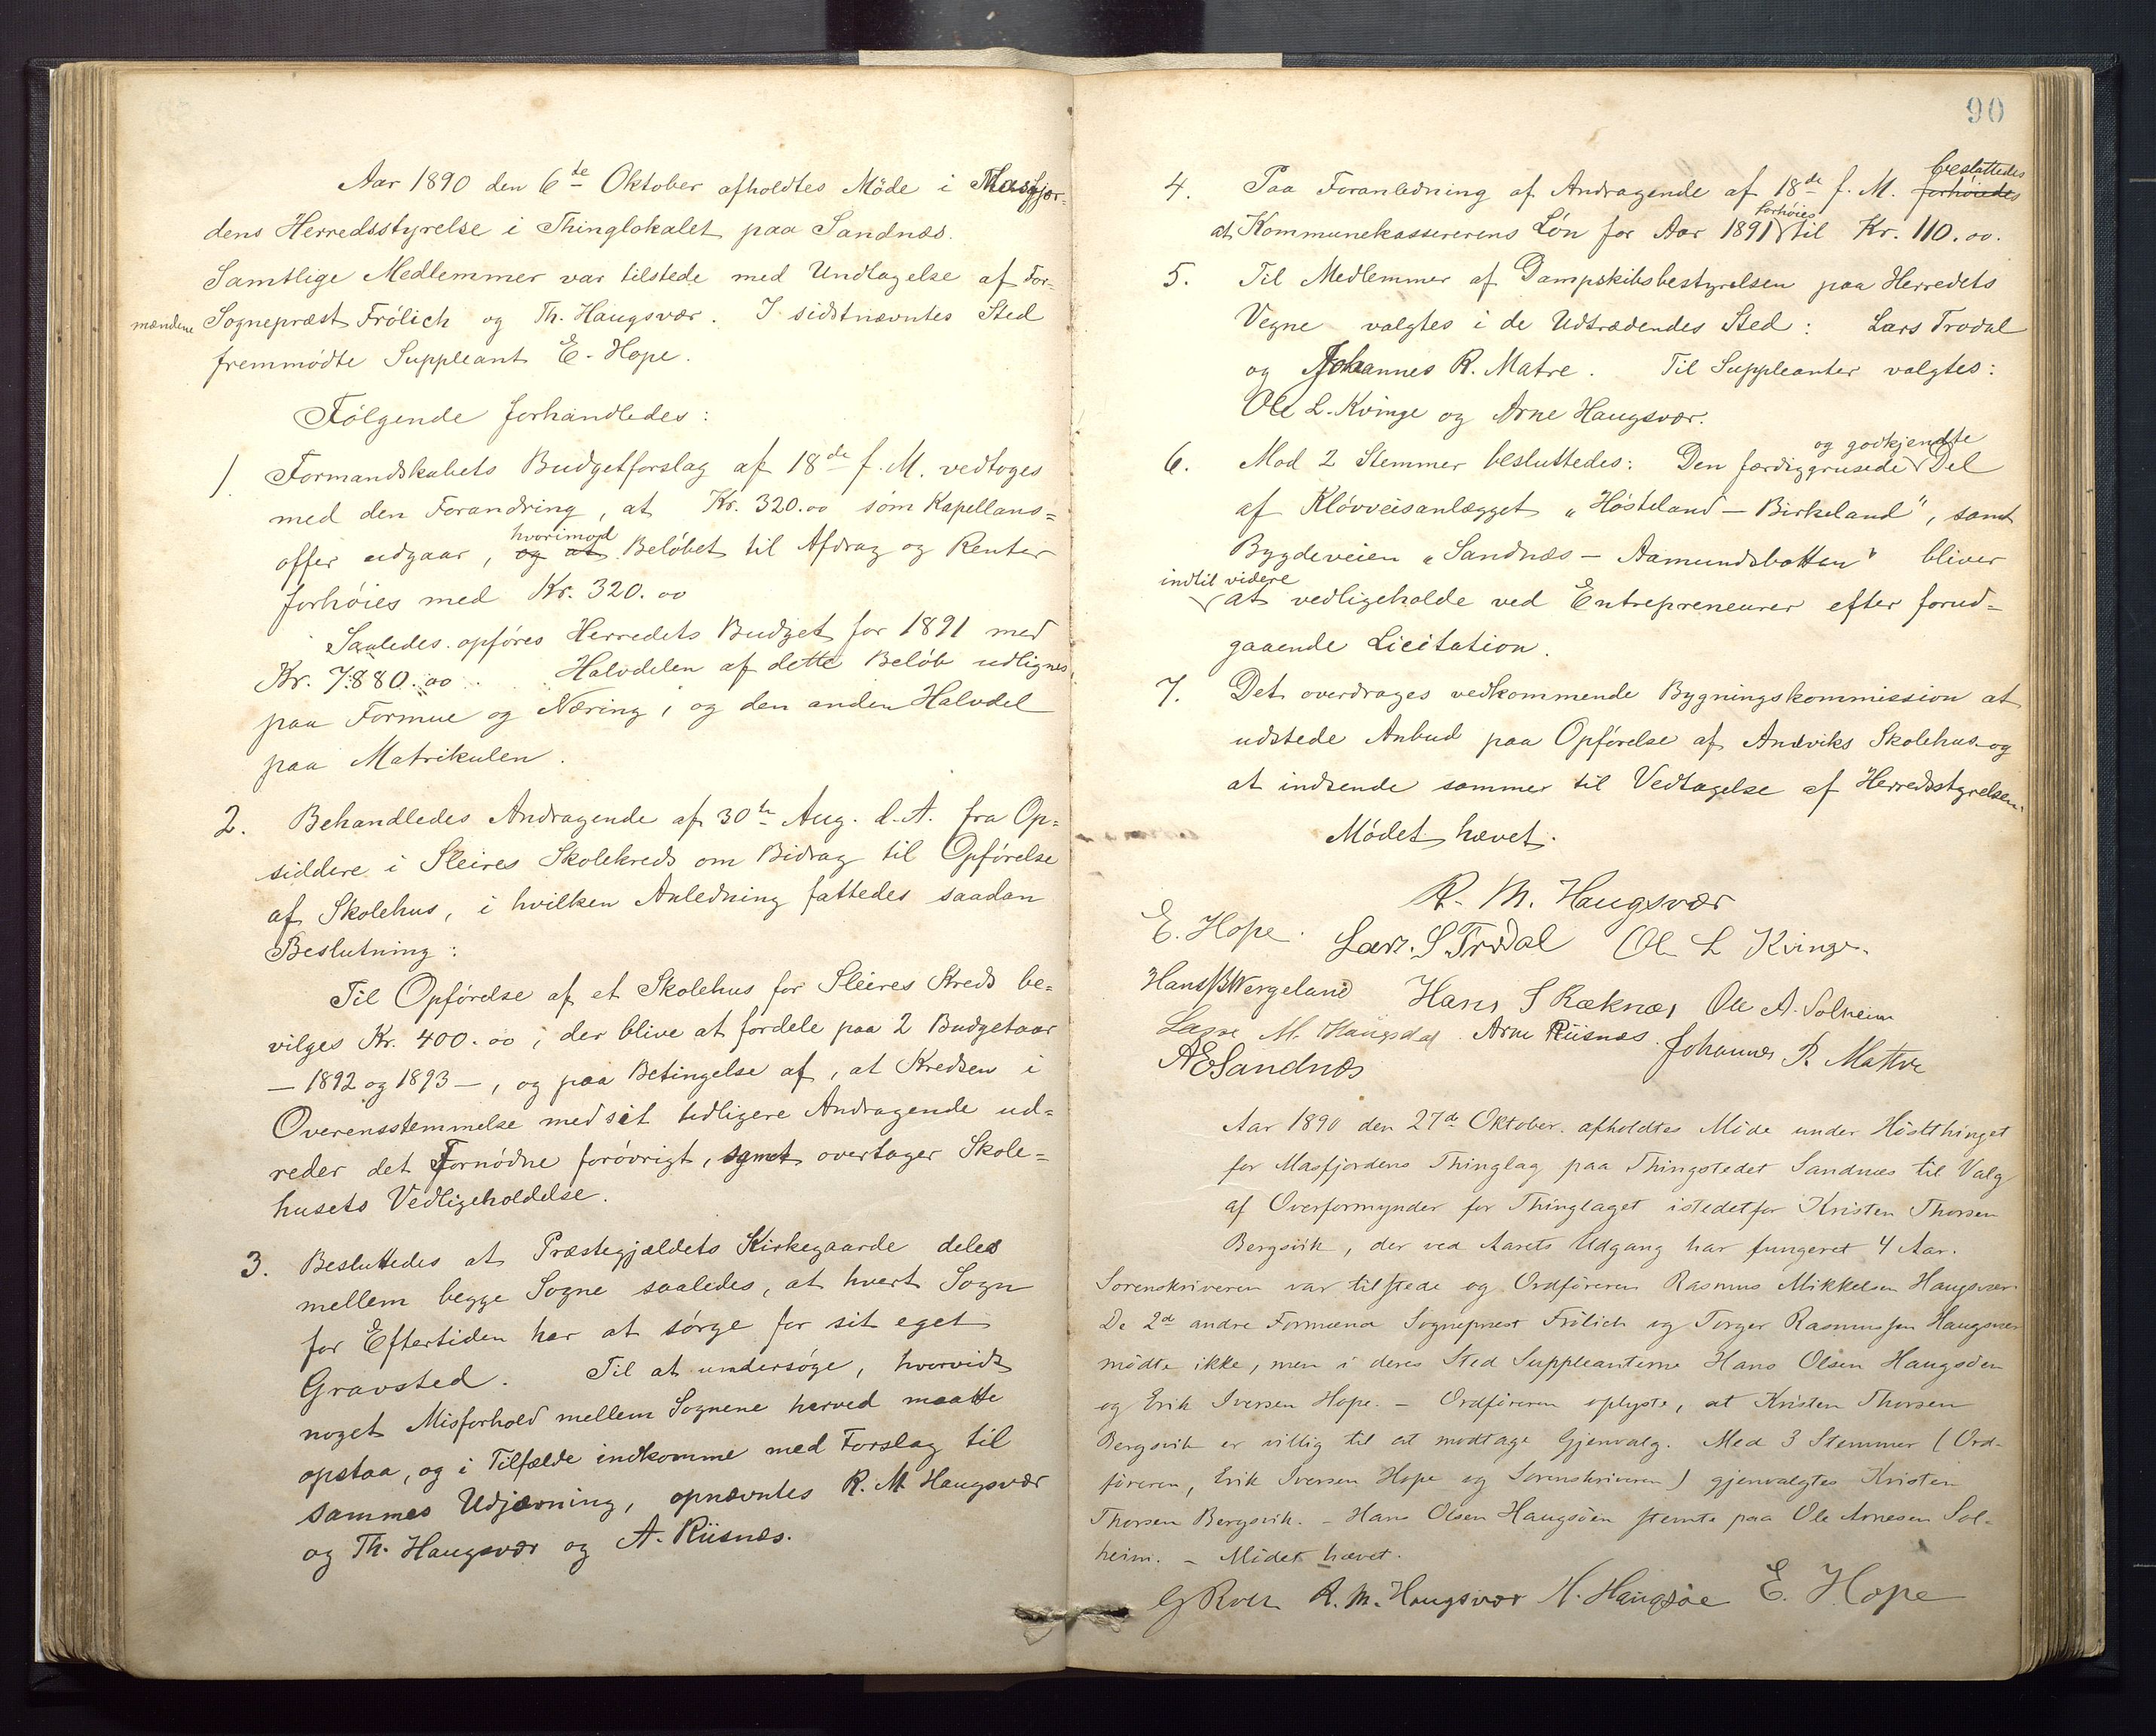 Aar 1890 den 6te Oktober afholdtes Möde i Masfjor-
dens Herredsstyrelse i Thinglokalet paa Sandnæs.
Samtlige Medlemmer var tilstede med Undtagelse af For-
mændene Sognepræst Frölich og Th. Haugsvær. I sidstnævntes Sted
fremmödte Suppleant E. Hope.
Fölgende forhandledes:
1. Formandskabets Budgetforslag af 18de f. M. vedtoges
med den Forandring, at Kr. 320.00 som Kapellans-
hvorimod
offer udgaar, og at Belöbet til Afdrag og Renter
forhöies med Kr. 320.00
Saaledes opföres Herredets Budget for 1891 med
Kr. 7880.00. Halvdelen af dette Belöb udlignes
paa Formue og Næring, og den anden Halvdel
paa Matrikulen.
2. Behandledes Andragende af 30te Aug. d. A. fra Op-
siddere i Sleires Skolekreds om Bidrag til Opförelse
af Skolehus, i hvilken Anledning fattedes saadan
Beslutning:
Til Opförelse af et Skolehus for Sleires Kreds be-
vilges Kr. 400.00, der blive at fordele paa 2 Budgetaar
— 1892 og 1893 —, og paa Betingelse af, at Kredsen i
Overensstemmelse med sit tidligere Andragende ud-
reder det Fornödne forövrigt, samt overtager Skole-
husets Vedligeholdelse.
3. Besluttedes at Præstegjældets Kirkegaarde deles
mellem begge Sogne saaledes, at hvert Sogn
for Eftertiden har at sörge for sit eget
Gravsted. Til at undersöge, hvorvidt
noget Misforhold mellem Sognene herved maatte
opstaa, og i Tilfælde indkomme med Forslag til
sammes Udjævning, opnævntes R. M. Haugsvær
og Th. Haugsvær og A. Riisnæs.
90
besluttedes
4. Paa Foranledning af Andragende af 18de f. M. forhöiedes
forhöies
at Kommunekassererens Lön for Aar 1891 til Kr. 110.00.
5. Til Medlemmer af Dampskibsbestyrelsen paa Herredets
Vegne valgtes i de Udtrædendes Sted: Lars Trodal
og Johannes R. Matre. Til Suppleanter valgtes:
Ole L. Kvinge og Arne Haugsvær.
og godkjendte
6. Mod 2 Stemmer besluttedes: Den færdiggrusede Del
af Klövveisanlægget „Hösteland – Birkeland", samt
Bygdeveien „Sandnæs – Aamundsbotten" bliver
indtil videre
at vedligeholde ved Entrepreneurer efter forud-
gaaende Licitation.
7. Det overdrages vedkommende Bygningskommission at
udstede Anbud paa Opförelse af Andviks Skolehus og
at indsende sammer til Vedtagelse af Herredsstyrelsen.
Mödet hævet.
R. M. Haugsvær
E. Hope. Lars. S Trodal Ole L Kvinge.
Hans B Wergeland Hans S Ræknæs Ole A. Solheim
Lasse M. Haugsdal Arne Riisnæs. Johannes R. Matre
A E Sandnæs
Aar 1890 den 27de Oktober afholdtes Möde under Höstthinget
for Masfjordens Thinglag paa Thingstedet Sandnæs til Valg
af Overformynder for Thinglaget istedetfor Kristen Thorsen
Bergsvik, der ved Aarets Udgang har fungeret 4 Aar.
Sorenskriveren var tilstede og Ordföreren Rasmus Mikkelsen Haugsvær.
De 2de andre Formænd Sognepræst Frölich og Torger Rasmussen Haugsvær
mödte ikke, men i deres Sted Suppleanterne Hans Olsen Haugsöen
og Erik Iversen Hope. – Ordföreren oplyste, at Kristen Thorsen
Bergsvik er villig til at modtage Gjenvalg. Med 3 Stemmer (Ord-
föreren, Erik Iversen Hope og Sorenskriveren) gjenvalgtes Kristen
Thorsen Bergsvik. – Hans Olsen Haugsöen stemte paa Ole Arnesen Sol-
heim. – Mödet hævet.
R. M. Haugsvær H. Haugsöe E. Hope